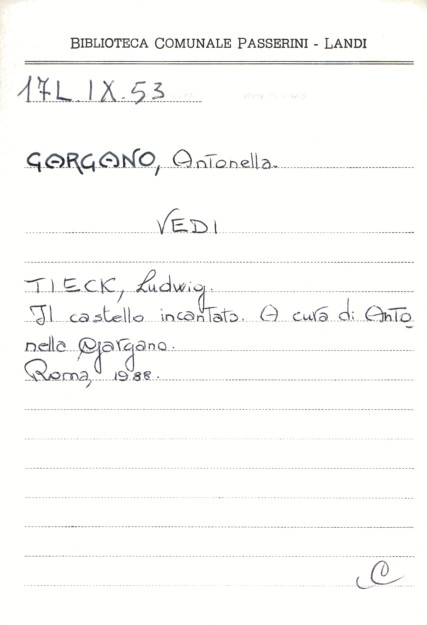 BIBLIOTECA COMUNALE PASSERINI - LANDI
17L.IX.53
GARGANO, Antonella.
VEDI
TIECK, Ludwig.
Il castello incantato. A cura di Anto
nella Gargano.
Roma, 1988.
C